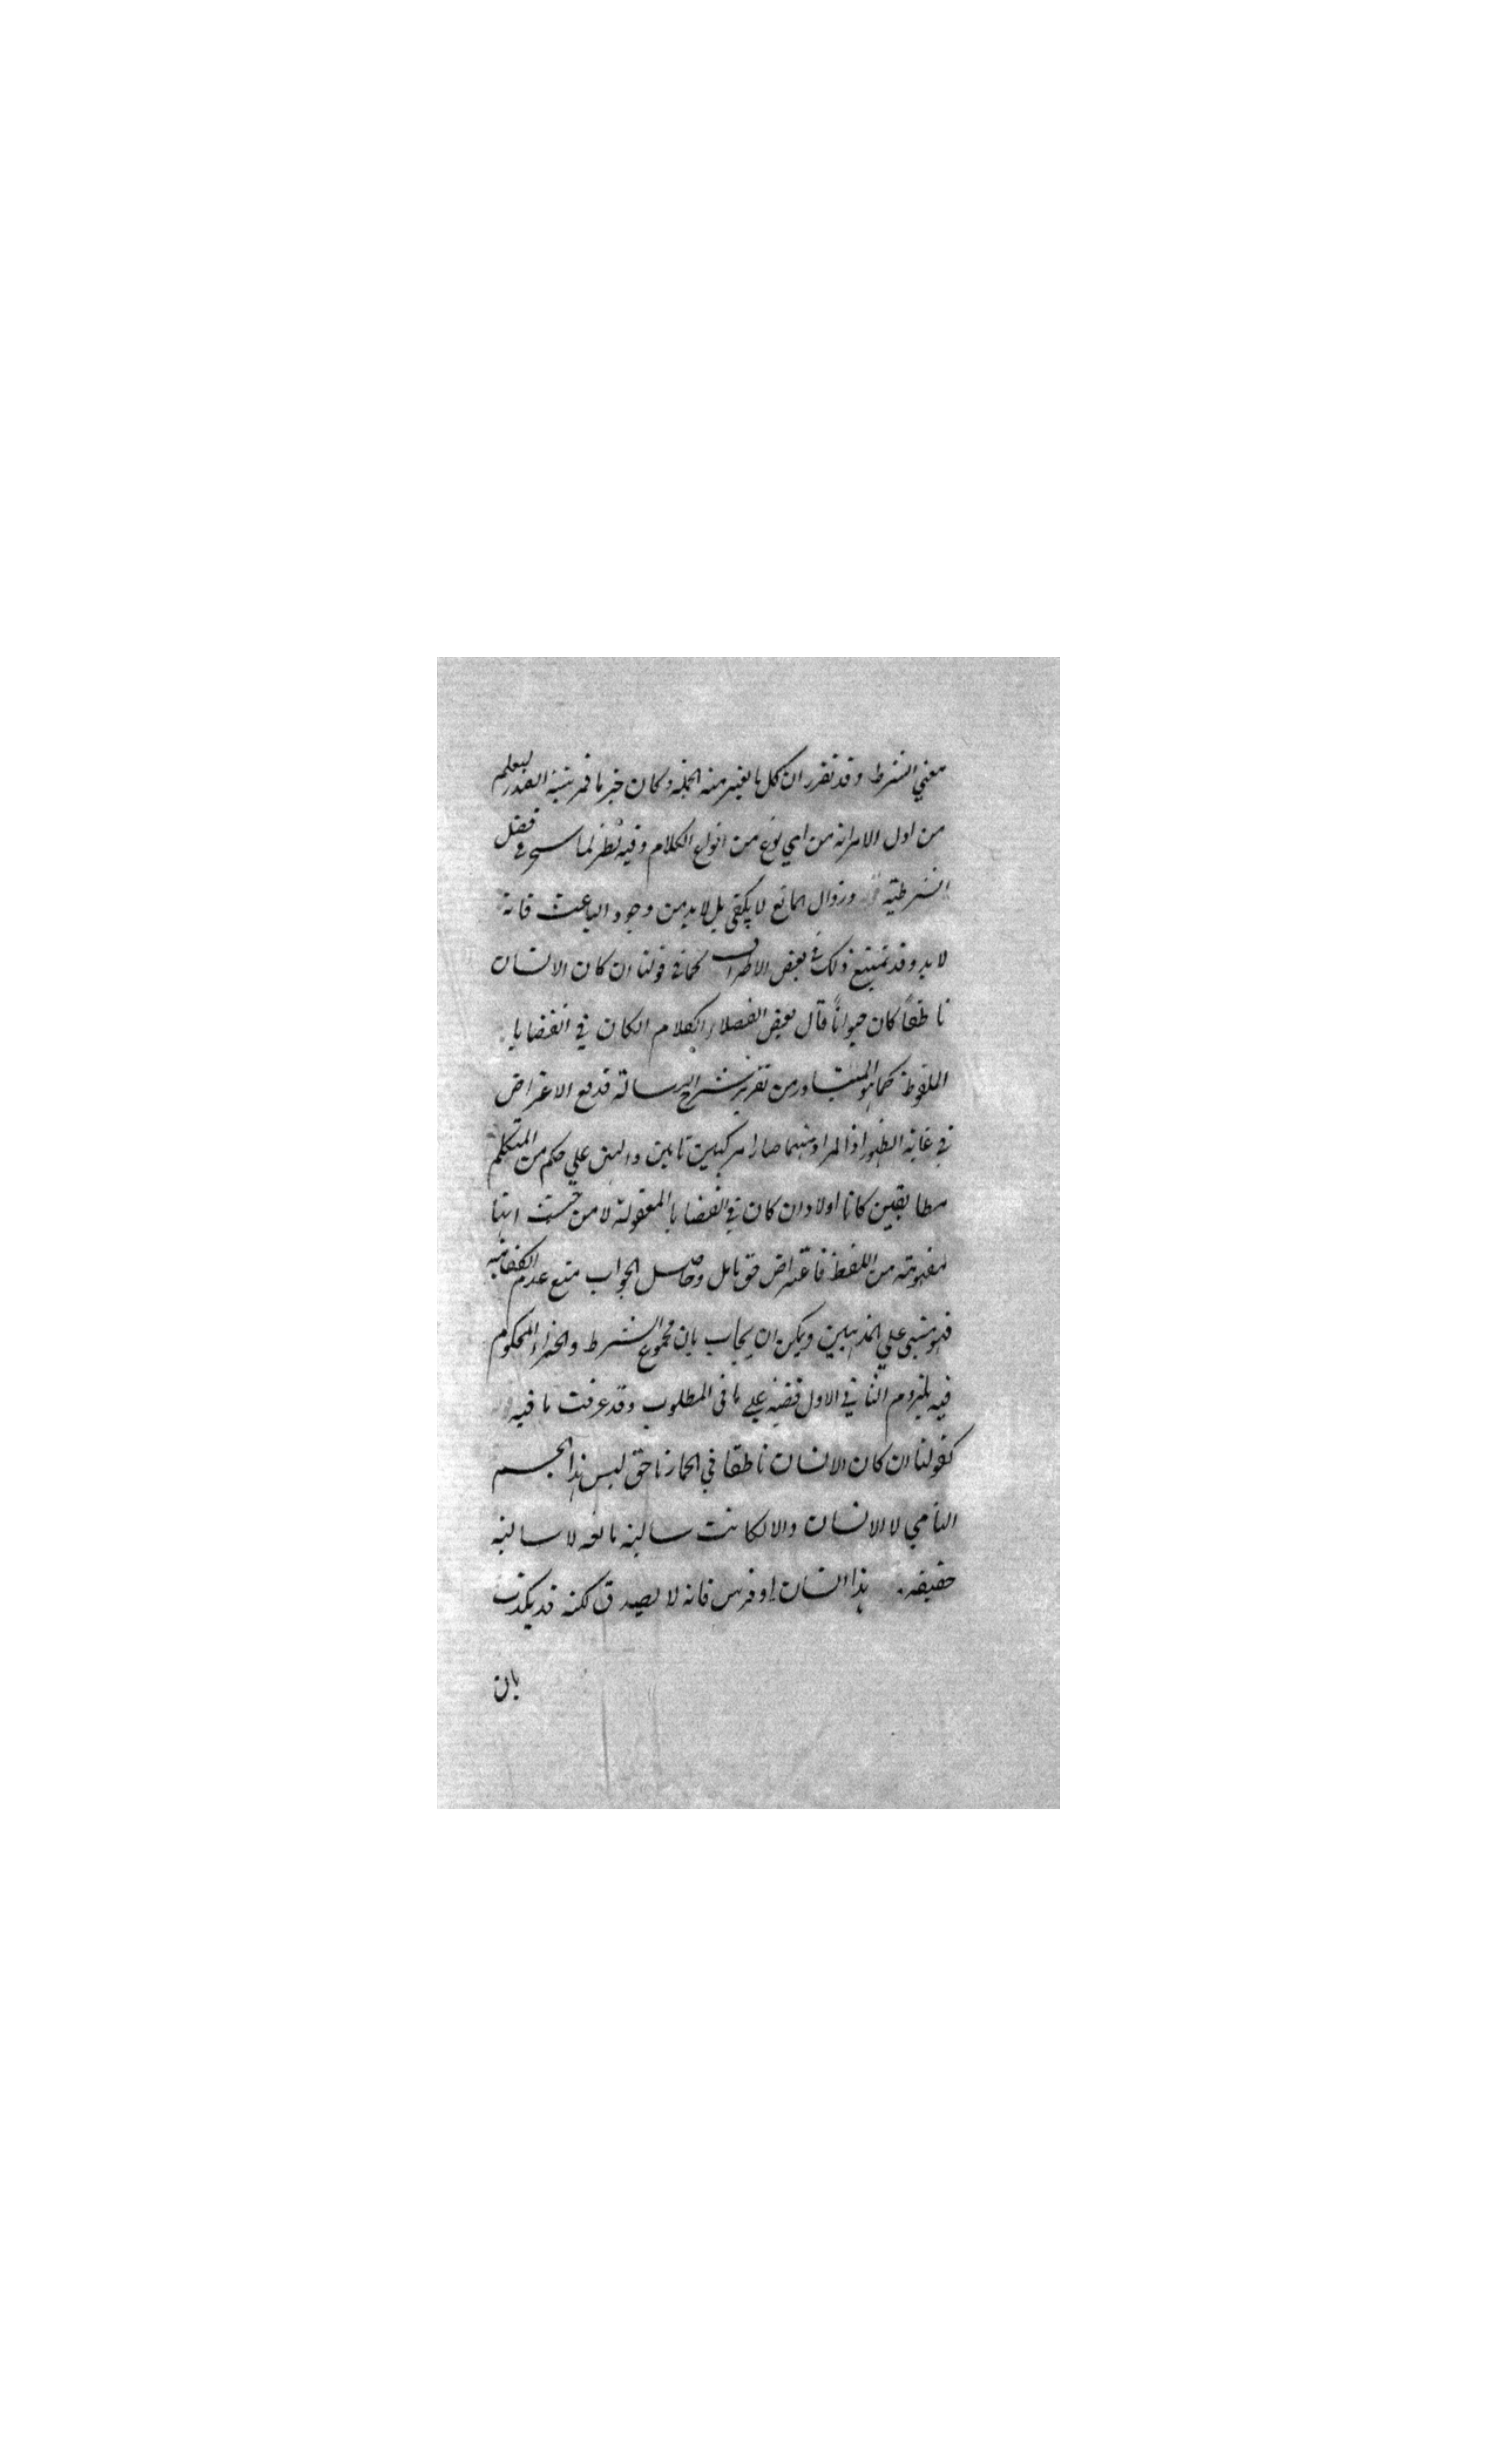 معني الشرط وقد تقرر ان كل ما يغير منه الجملة وكان خبرا فمرتبته الصدر ليعلم
من اول الامر انه من اي نوع من انواع الكلام وفيه نظر لما سيجي في فصل
الشرطية وزوال المانع لا يكفي بل لا بد من وجود الباعث فانه
لا بد وقد يمتنع ذلك في بعض الاطراف كما في قولنا ان كان الانسان
ناطقاً كان حيواناً قال بعض الفضلاء الكلام ان كان في القضايا
الملفوظة كما هو المتبادر من تقرير شرح الرسالة فدفع الاعتراض
في غاية الظهور اذ المراد منهما صارا مركبين تامين دالين علي حكم من المتكلم
مطابقين كانا اولا وان كان في القضايا المعقولة لا من حيث انها
مفهومة من اللفظ فاعتراض حق تامل وحاصل الجواب منع عدم
فهو مبني علي المذهبين ويمكن ان يجاب بان مجموع الشرط والجزاء المحكوم
فيه بلزوم الثاني الاول قضية علي ما في المطلوب وقد عرفت ما فيه
كقولنا ان كان الانسان ناطقا في الحمار ناهق ليس هذا الجسم
النامي لا الانسان والا لكانت سالبة مانعه لا سالبة
حقيقه هذا انسان او فرس فانه لا يصدق لكنه قد يكذب
بان